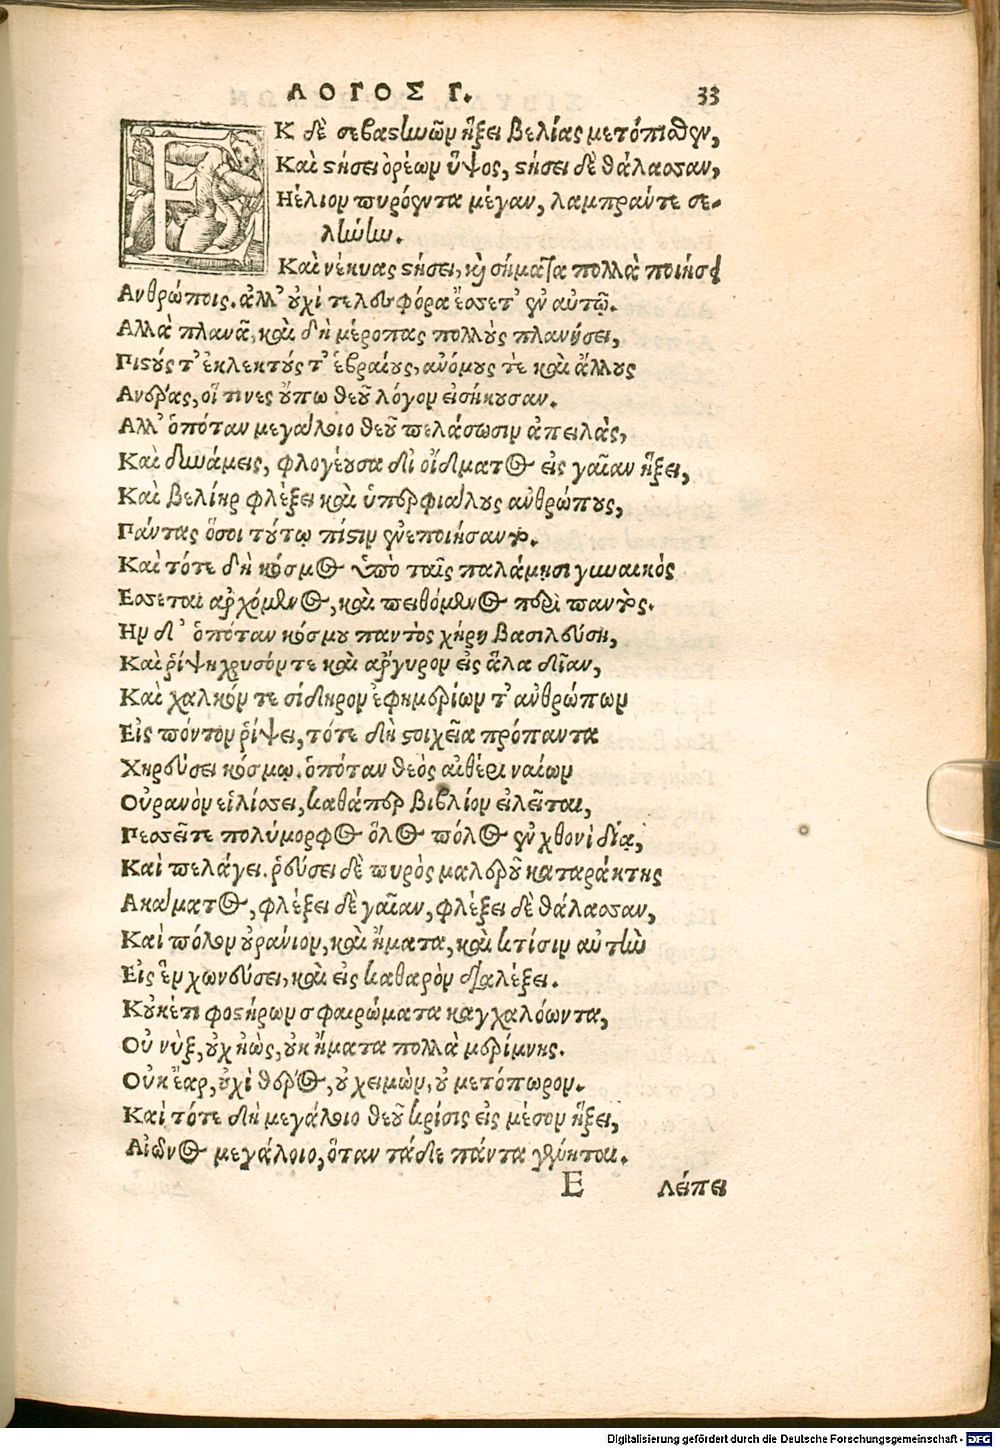 ΛΟΓΟΣ Γ. 33
ΕΚ δὲ σεβαστωῶν ἥξει βελίας μετόπισθεν,
Καὶ στήσει ὀρέων ὕψος, στήσει δὲ θάλασσαν,
Ηέλιον πυρόεντα μέγαν, λαμπράντε σε-
λωώω.
Καὶ νέκυας στήσει, καὶ σήματα πολλὰ ποιήσει
Ανθρώποις. ἀλλ' οὐχὶ τελεσφόρα ἔσσετ' ἐν αὐτῷ.
Αλλὰ πλανᾶ, καὶ δὴ μέροπας πολλοὺς πλανήσει,
Πιστούς τ' ἐκλεκτούς τ' ἑβραίους, ἀνόμους τὲ καὶ ἄλλους
Ανδρας, οἵ τινες οὔπω θεοῦ λόγον εἰσήκουσαν.
Αλλ' ὁπόταν μεγάλοιο θεοῦ πελάσωσιν ἀπειλὰς,
Καὶ δυνάμεις, φλογέουσα δι οἴδματος εἰς γαῖαν ἥξει,
Καὶ βελίηρ φλέξει καὶ ὑπερφιάλους ἀνθρώπους,
Πάντας ὅσοι τούτῳ πίστιν ἐνεποιήσαντο.
Καὶ τότε δὴ κόσμος ὑπὸ ταῖς παλάμῃσι γυναικὸς
Εσσεται ἀρχόμενος, καὶ πειθόμενος περὶ παντὸς.
Ην δ' ὁπόταν κόσμου παντὸς χήρη βασιλεύση,
Καὶ ῥίψη χρυσόν τε καὶ ἄργυρον εἰς ἅλα δῖαν,
Καὶ χαλκόν τε σίδηρον ἐφημερίων τ' ἀνθρώπων
Εἰς πόντον ῥίψει, τότε δὴ στοιχεῖα πρόπαντα
Χηρεύσει κόσμῳ. ὁπόταν θεὸς αἰθέρι ναίων
Οὐρανὸν εἱλίσσει, καθάπερ βιβλίον εἰλεῖται,
Πεσσεῖτε πολύμορφος ὅλος πόλος ἐν χθονὶ δίᾳ,
Καὶ πελάγει. ῥεύσει δὲ πυρὸς μαλεροῦ καταράκτης
Ακάματος, φλέξει δὲ γαῖαν, φλέξει δὲ θάλασσαν,
Καὶ πόλον οὐράνιον, καὶ ἤματα, καὶ κτίσιν αὐτὼ
Εἰς ἓν χωνεύσει, καὶ εἰς καθαρὸν διαλέξει.
Κοὐκέτι φοστήρων σφαιρώματα καγχαλόωντα,
Οὐ νὺξ, οὐχ ἠὼς, οὐκ ἤματα πολλὰ μερίμνης.
Οὐκ ἔαρ, οὐχὶ θέρος, οὐ χειμὼν, οὐ μετόπωρον.
Καὶ τότε δὴ μεγάλοιο θεοῦ κρίσις εἰς μέσον ἥξει,
Αἰῶνος μεγάλοιο, ὅταν τάδε πάντα γένηται.
E λέπει
Digitalisierung gefördert durch die Deutsche Forschungsgemeinschaft - DFG